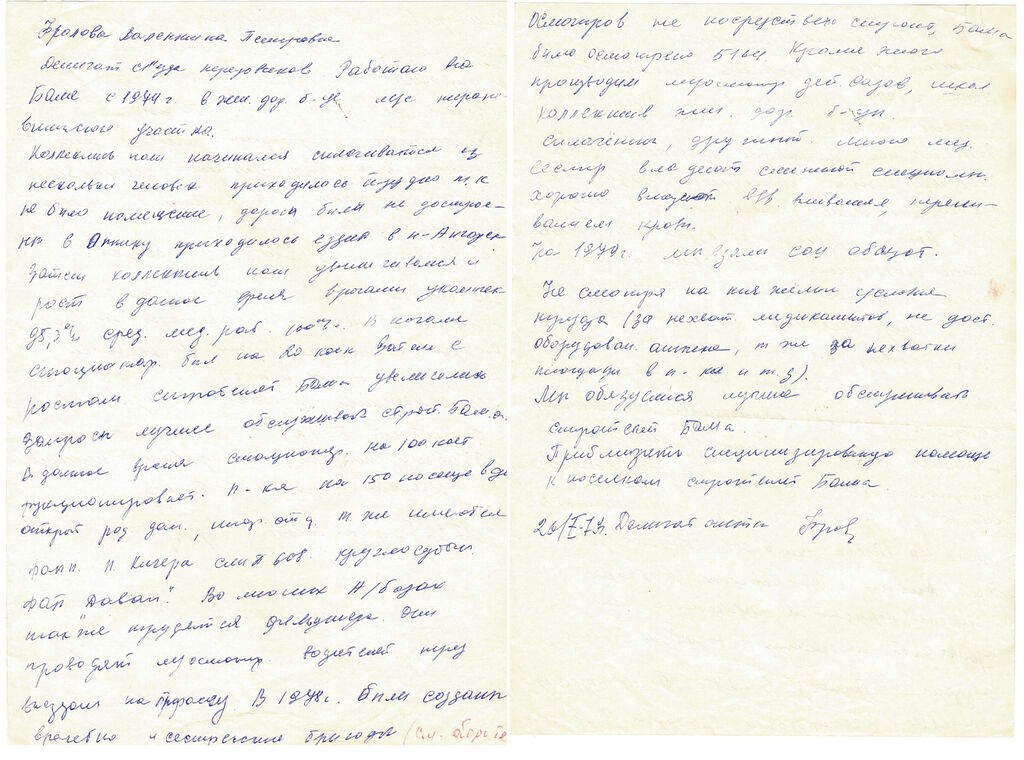 Фролова Валентина Петровна
Делегат съезда передовиков Работаю на
Баме с 1974 г в жел. дор. б-це
участка.
Коллектив наш начинался сколачиваться из
несколько человек приходилось трудно т. к
не было помещение, дороги были не достро-
ны в Аптеку приходилось ездить в н-Ангарск
Затем коллектив наш увеличивался и
рост в данное время врачами укомплек
95,3% сред. мед. раб. 100%. В начале
стационар. был на 20 коек Затем с
ростом строителей Бама увеличились
Запросы лучше обслуживать строит. Бама.
В данное время стационар. на 100 коек
функционировает. п-ка на 150 посеще в д
открыт род. дом, отд. т. же имеется
п. Кичера круглосуточ.
фап "Даван". Во многих А/базах
так же трудятся фельдшера. Они
проводят мед осмотр. водителей перед
выездом на Трассу В 1978 г. были созданы
врачебно и сестринские бригады (см. обороте
Осмотров не посредствено строит, Бама
было осмотрено Кроме этого
проводим мед осмотр дет. садов, школ
Коллектив жел. дор. б-цы.
сплаченный, дружный много мед.
Сестер владеют смежной специальн.
хорошо в/в вливания, перели-
валием крови.
На 1979 г. мы взяли соц обязат.
Не смотря на тяжёлые условия
труда (за нехват. медикаментов, не дост.
оборудован. аптека, т же за нехватки
площади в п-ке и т. д).
Мы обязуемся лучше обслуживать
строителей Бама.
Приблизить специализированую помощь
к поселкам строителей Бама.
Делегат слёта Фрол